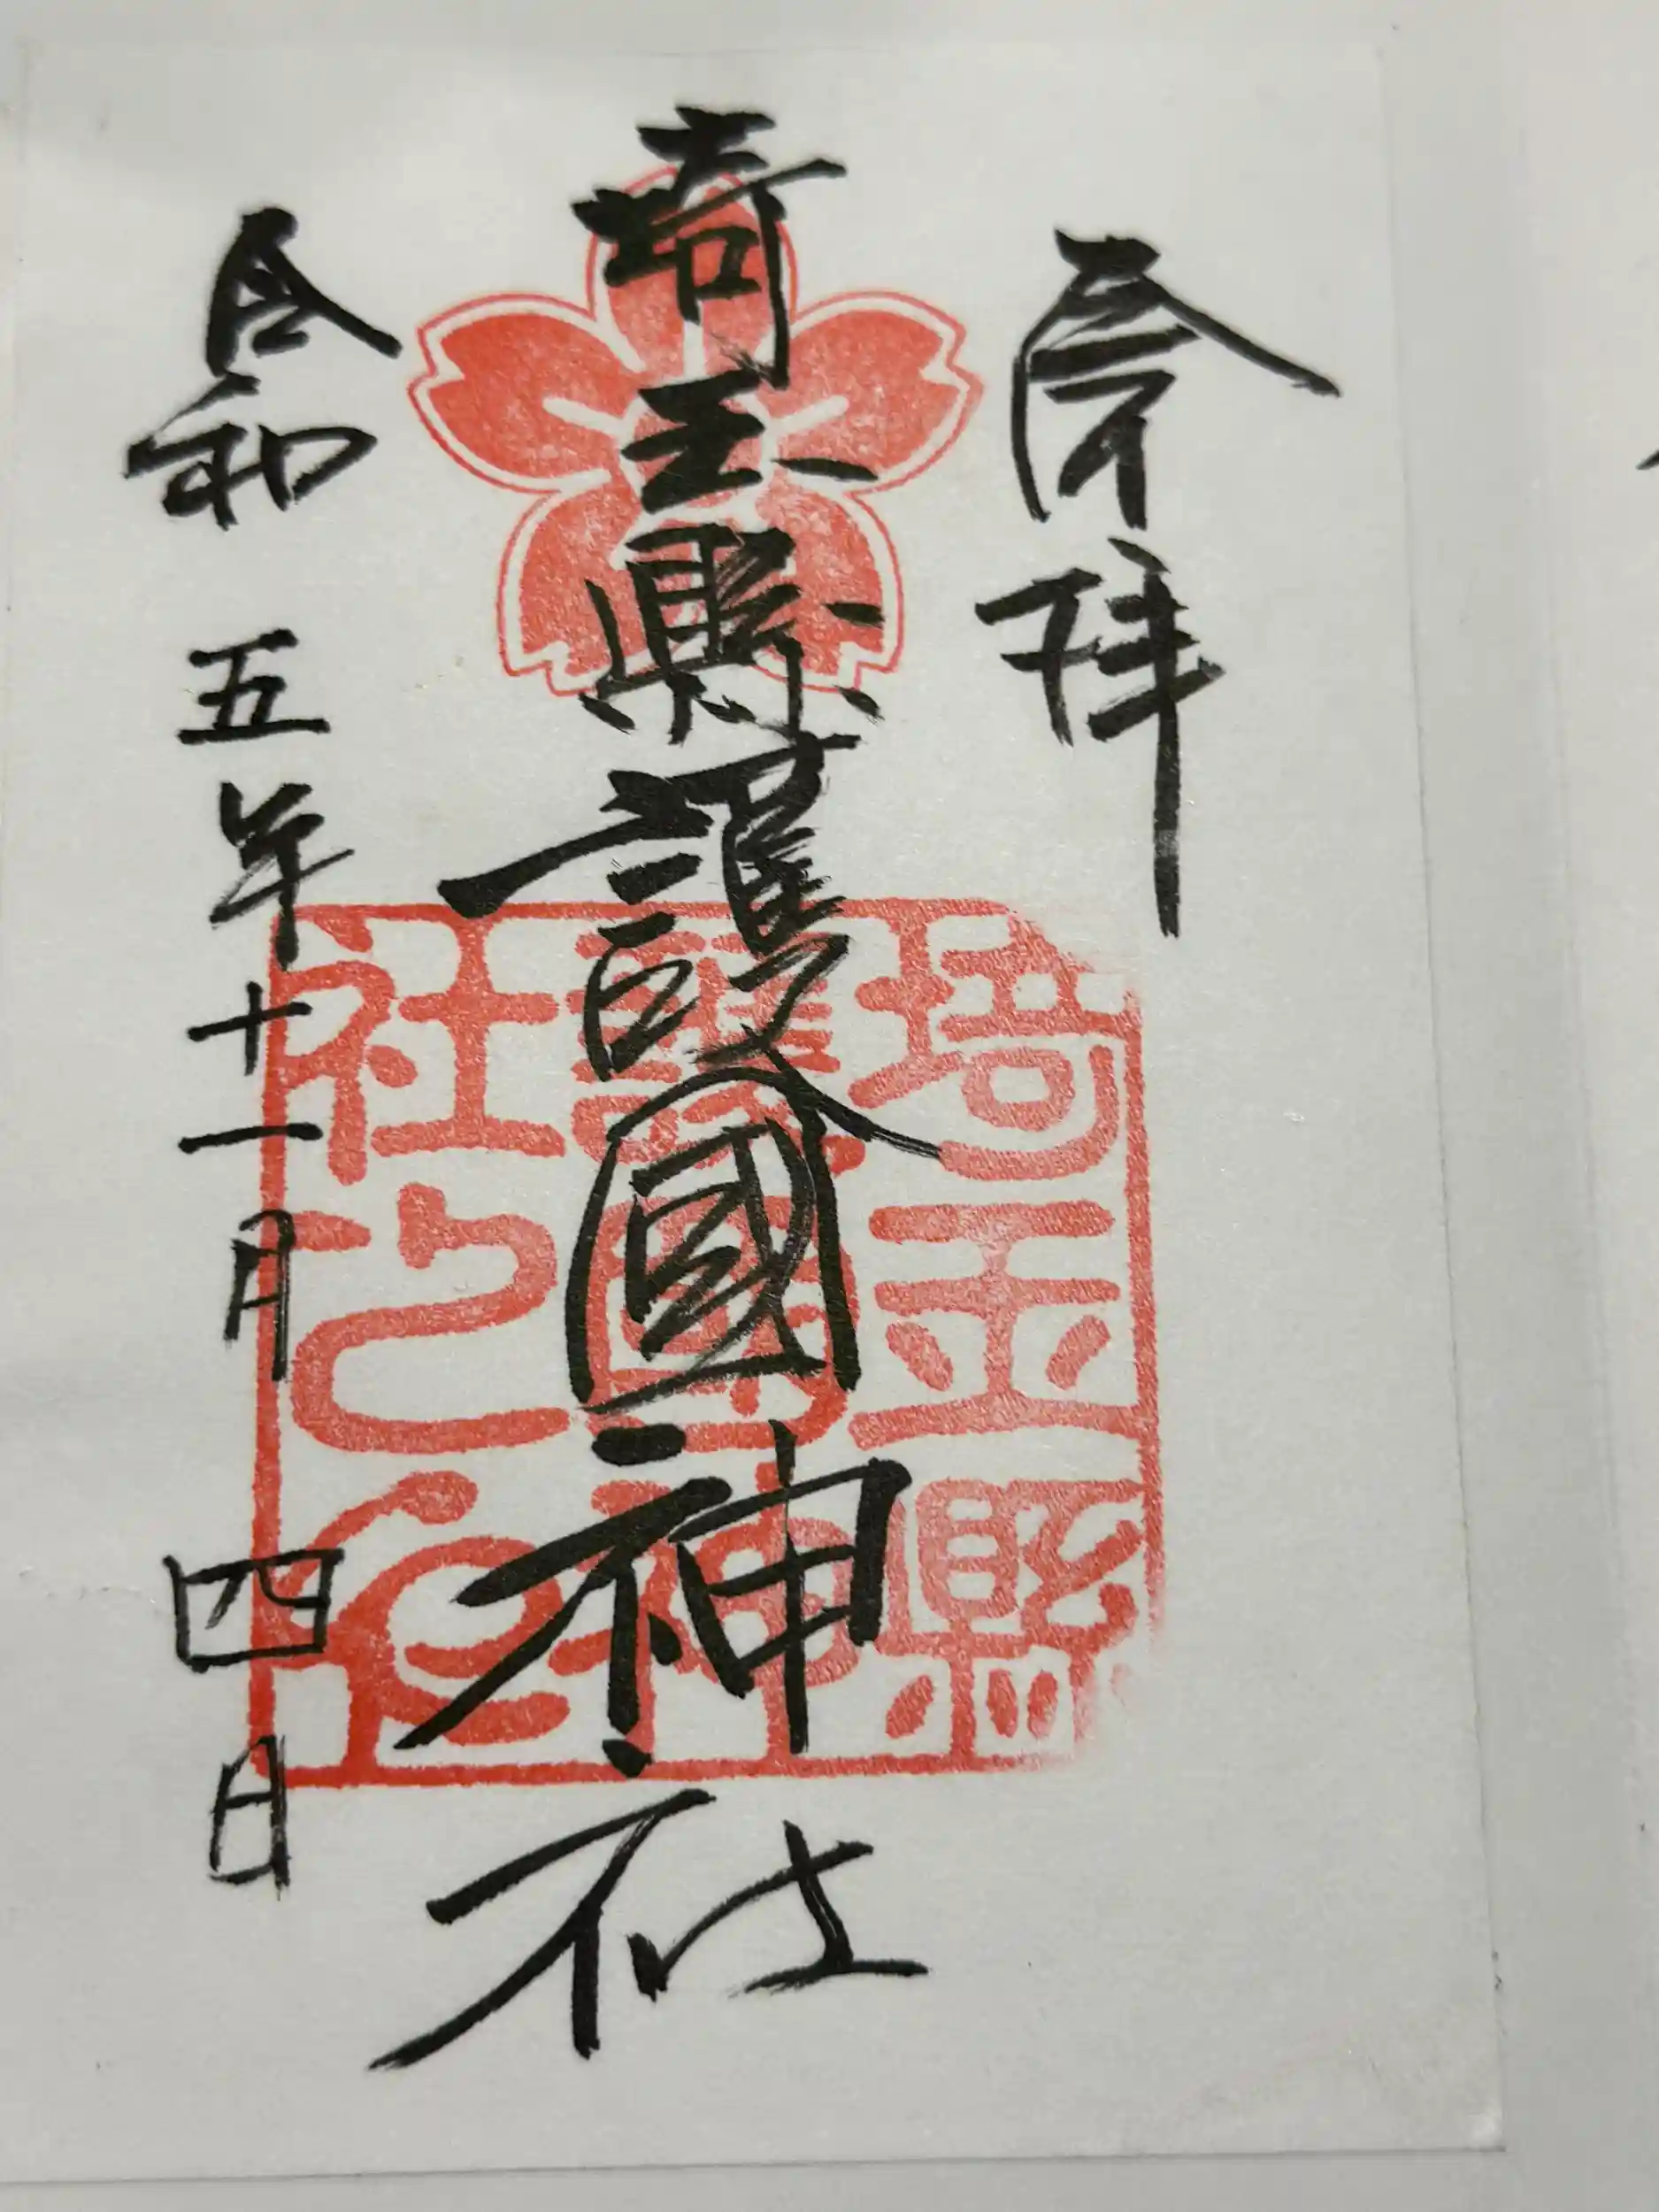 奉拝
埼玉縣護國神社
令和五年十一月四日
埼玉縣
護國神
社之印